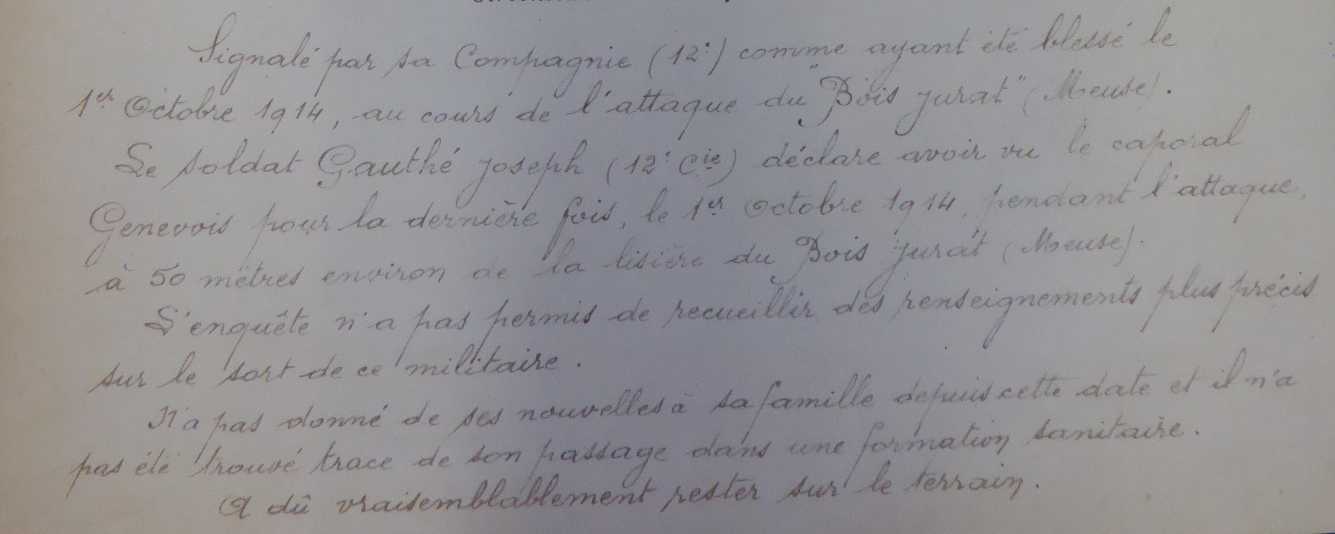 Signalé par sa Compagnie (12e) comme ayant été blessé le
1er Octobre 1914, au cours de l'attaque du "Bois Jurat" (Meuse).
Le soldat Gauthé Joseph (12e Cie) déclare avoir vu le caporal
Genevois pour la dernière fois, le 1er Octobre 1914, pendant l'attaque,
à 50 mètres environ de la lisière du Bois Jurat (Meuse).
L'enquête n'a pas permis de recueillir des renseignements plus précis
sur le sort de ce militaire.
N'a pas donné de ses nouvelles à sa famille depuis cette date et il n'a
pas été trouvé trace de son passage dans une formation sanitaire.
A dû vraisemblablement rester sur le terrain.